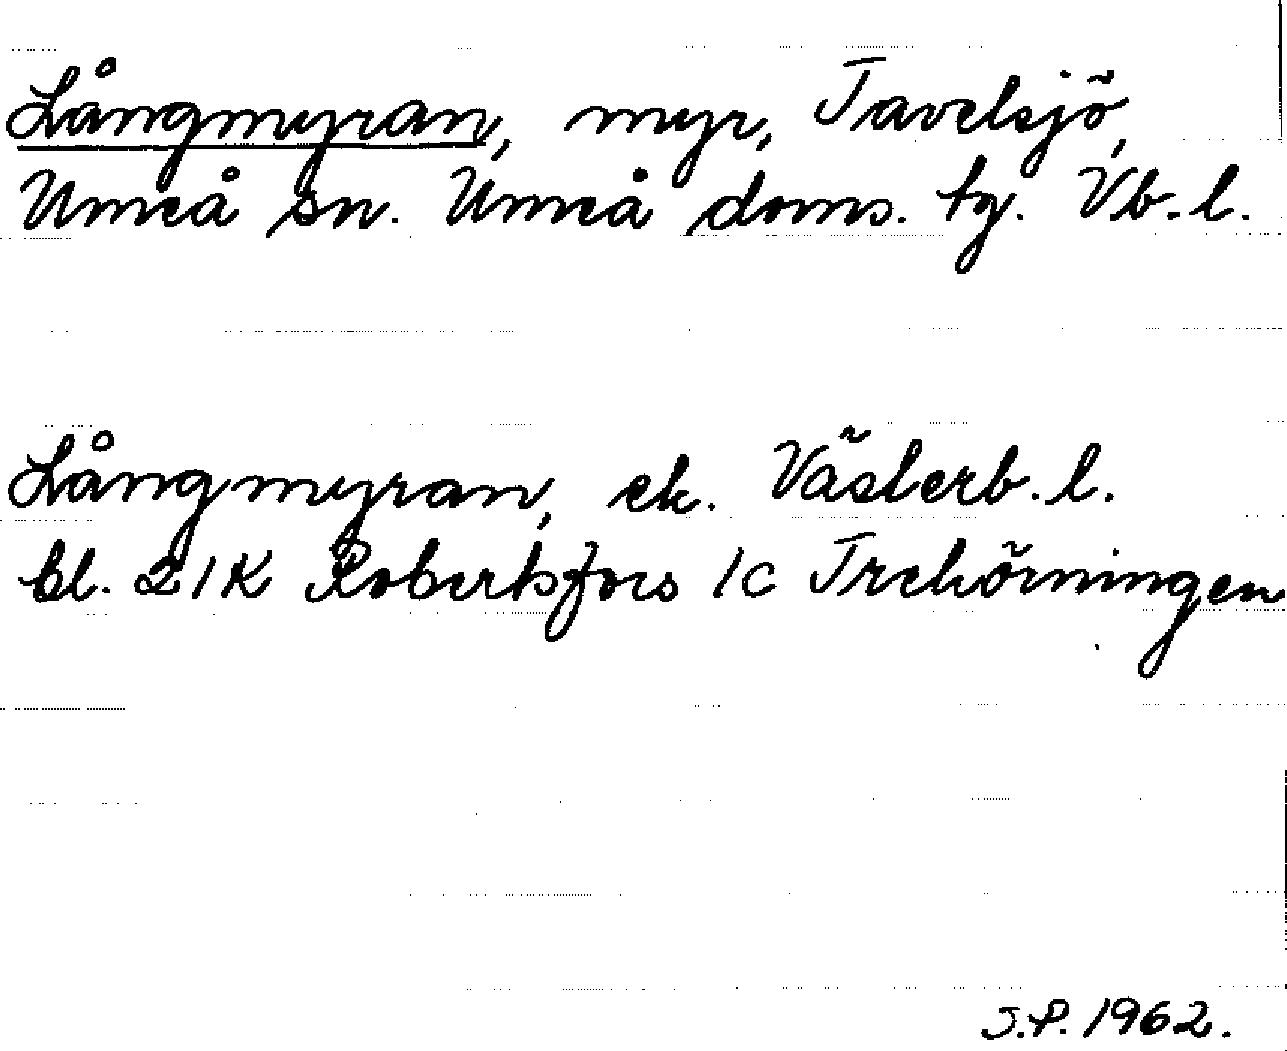 Långmyran, myr, Tavelsjö,
Umeå sn. Umeå doms. tg. Vb. l.
Långmyran, ek. Västerb. l.
bl. 21K Robertsfors 1c Trehörningen
J.P. 1962.